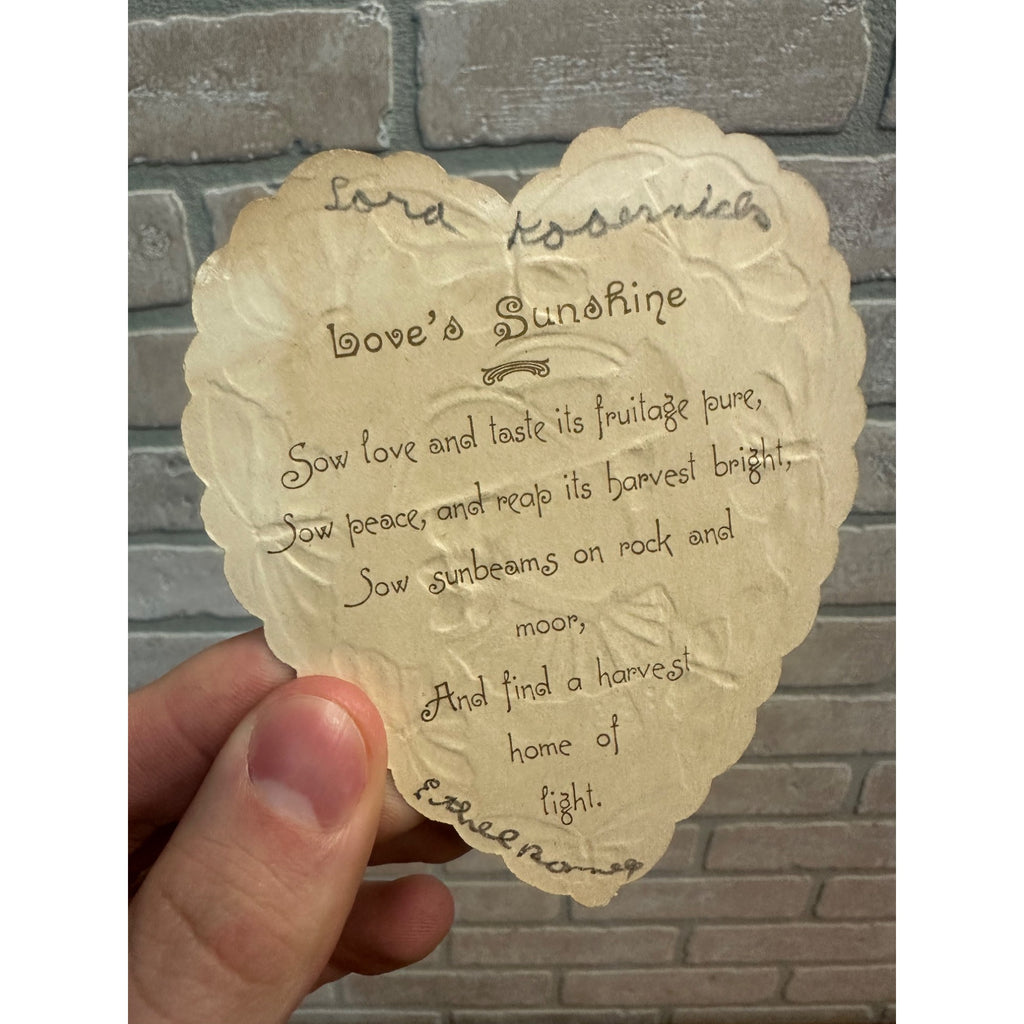 Lora
Love's Sunshine
Sow love and taste its fruitage pure,
Sow peace, and reap its harvest bright,
Sow sunbeams on rock and
moor,
And find a harvest
home of
light.
Ethel